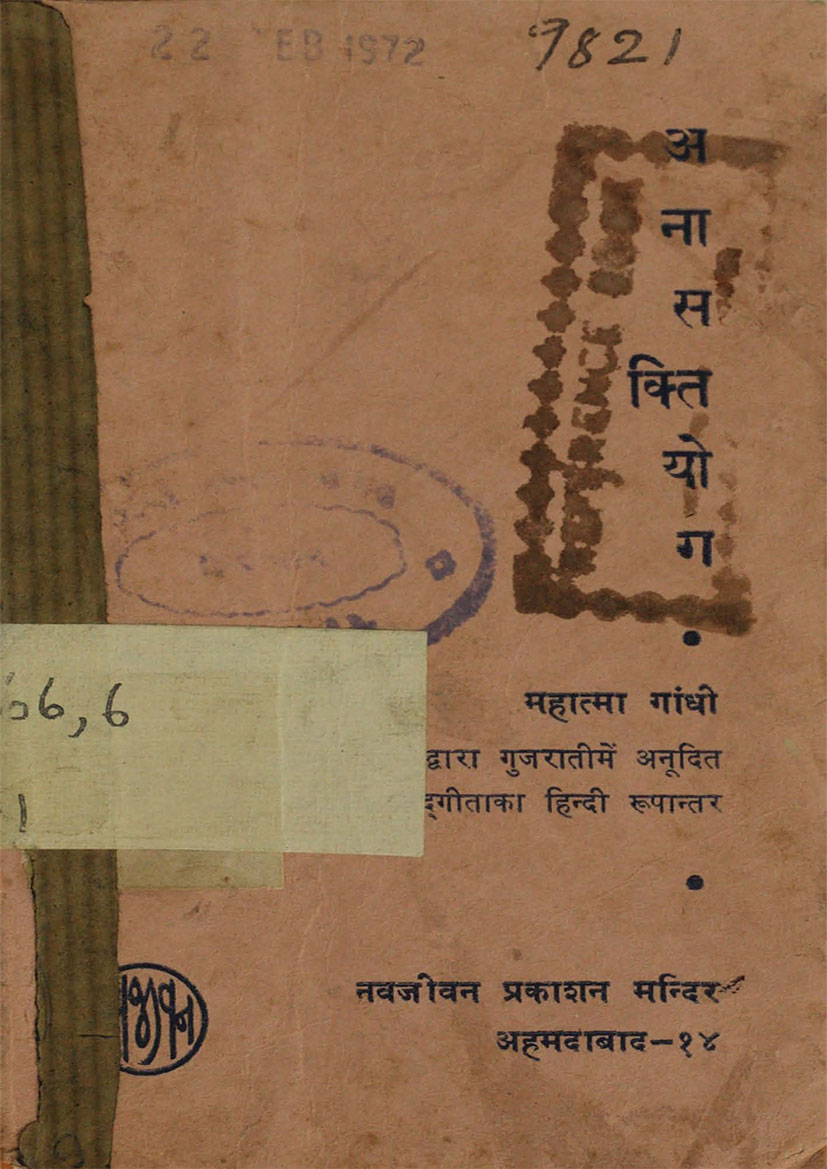 22 EB 1972
9821
अ
ना
स
क्ति
यो
ग
66,6
1
महात्मा गांधी
द्वारा गुजरातीमें अनूदित
द्गीताका हिन्दी रूपान्तर
नवजीवन प्रकाशन मन्दिर
अहमदाबाद–१४